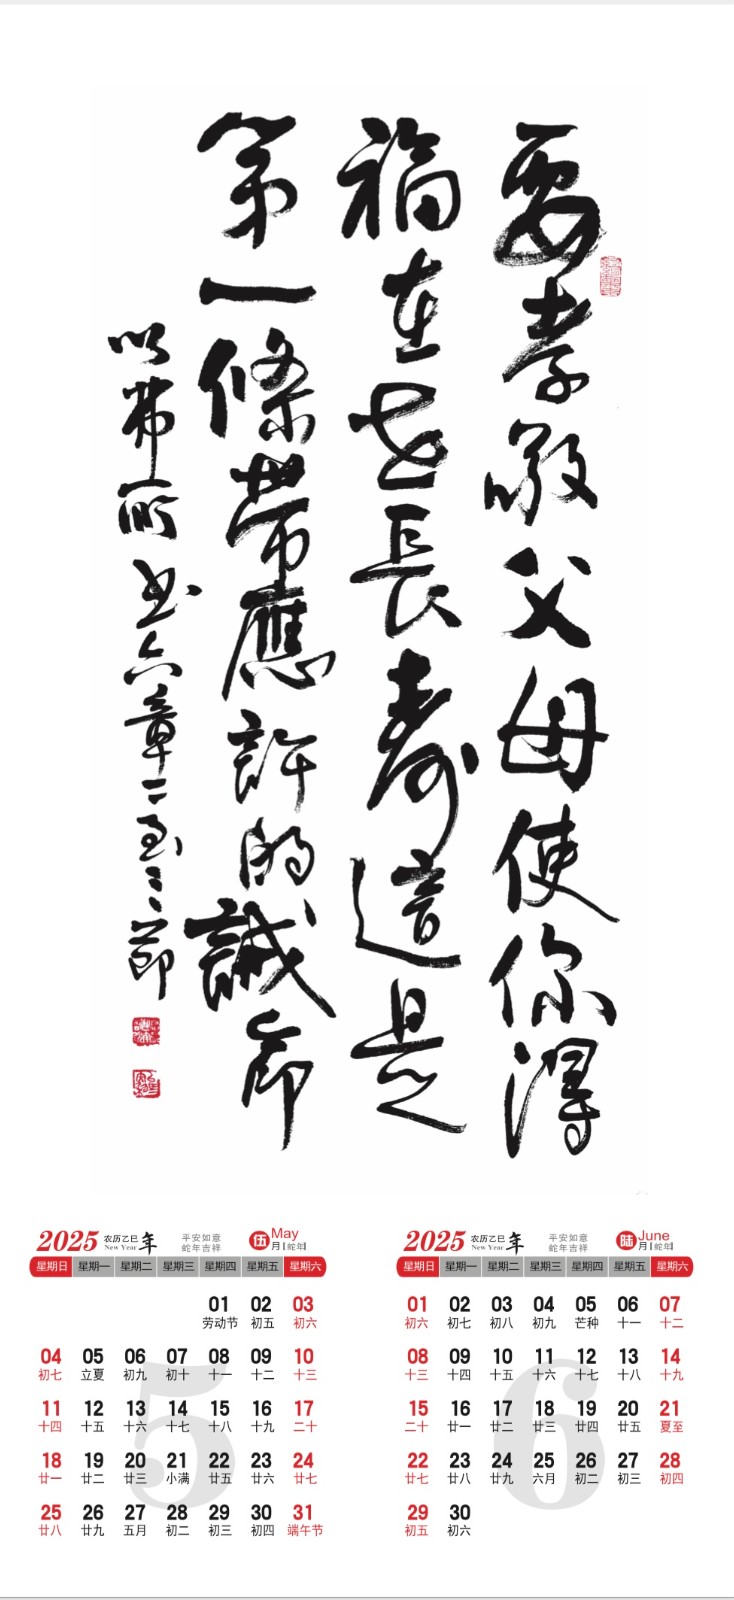 要孝敬父母使你得
福在世長壽這是
第一條帶應許的誡命
以弗所书六章二至三節
2025 农历乙巳年 New Year 平安如意 蛇年吉祥 伍月 May 蛇年
星期日 星期一 星期二 星期三 星期四 星期五 星期六
01 02 03
劳动节 初五 初六
04 05 06 07 08 09 10
初七 立夏 初九 初十 十一 十二 十三
11 12 13 14 15 16 17
十四 十五 十六 十七 十八 十九 二十
18 19 20 21 22 23 24
廿一 廿二 廿三 小满 廿五 廿六 廿七
25 26 27 28 29 30 31
廿八 廿九 五月 初二 初三 初四 端午节
5
2025 农历乙巳年 New Year 平安如意 蛇年吉祥 陆月 June 蛇年
星期日 星期一 星期二 星期三 星期四 星期五 星期六
01 02 03 04 05 06 07
初六 初七 初八 初九 芒种 十一 十二
08 09 10 11 12 13 14
十三 十四 十五 十六 十七 十八 十九
15 16 17 18 19 20 21
二十 廿一 廿二 廿三 廿四 廿五 夏至
22 23 24 25 26 27 28
廿七 廿八 廿九 六月 初二 初三 初四
29 30
初五 初六
6